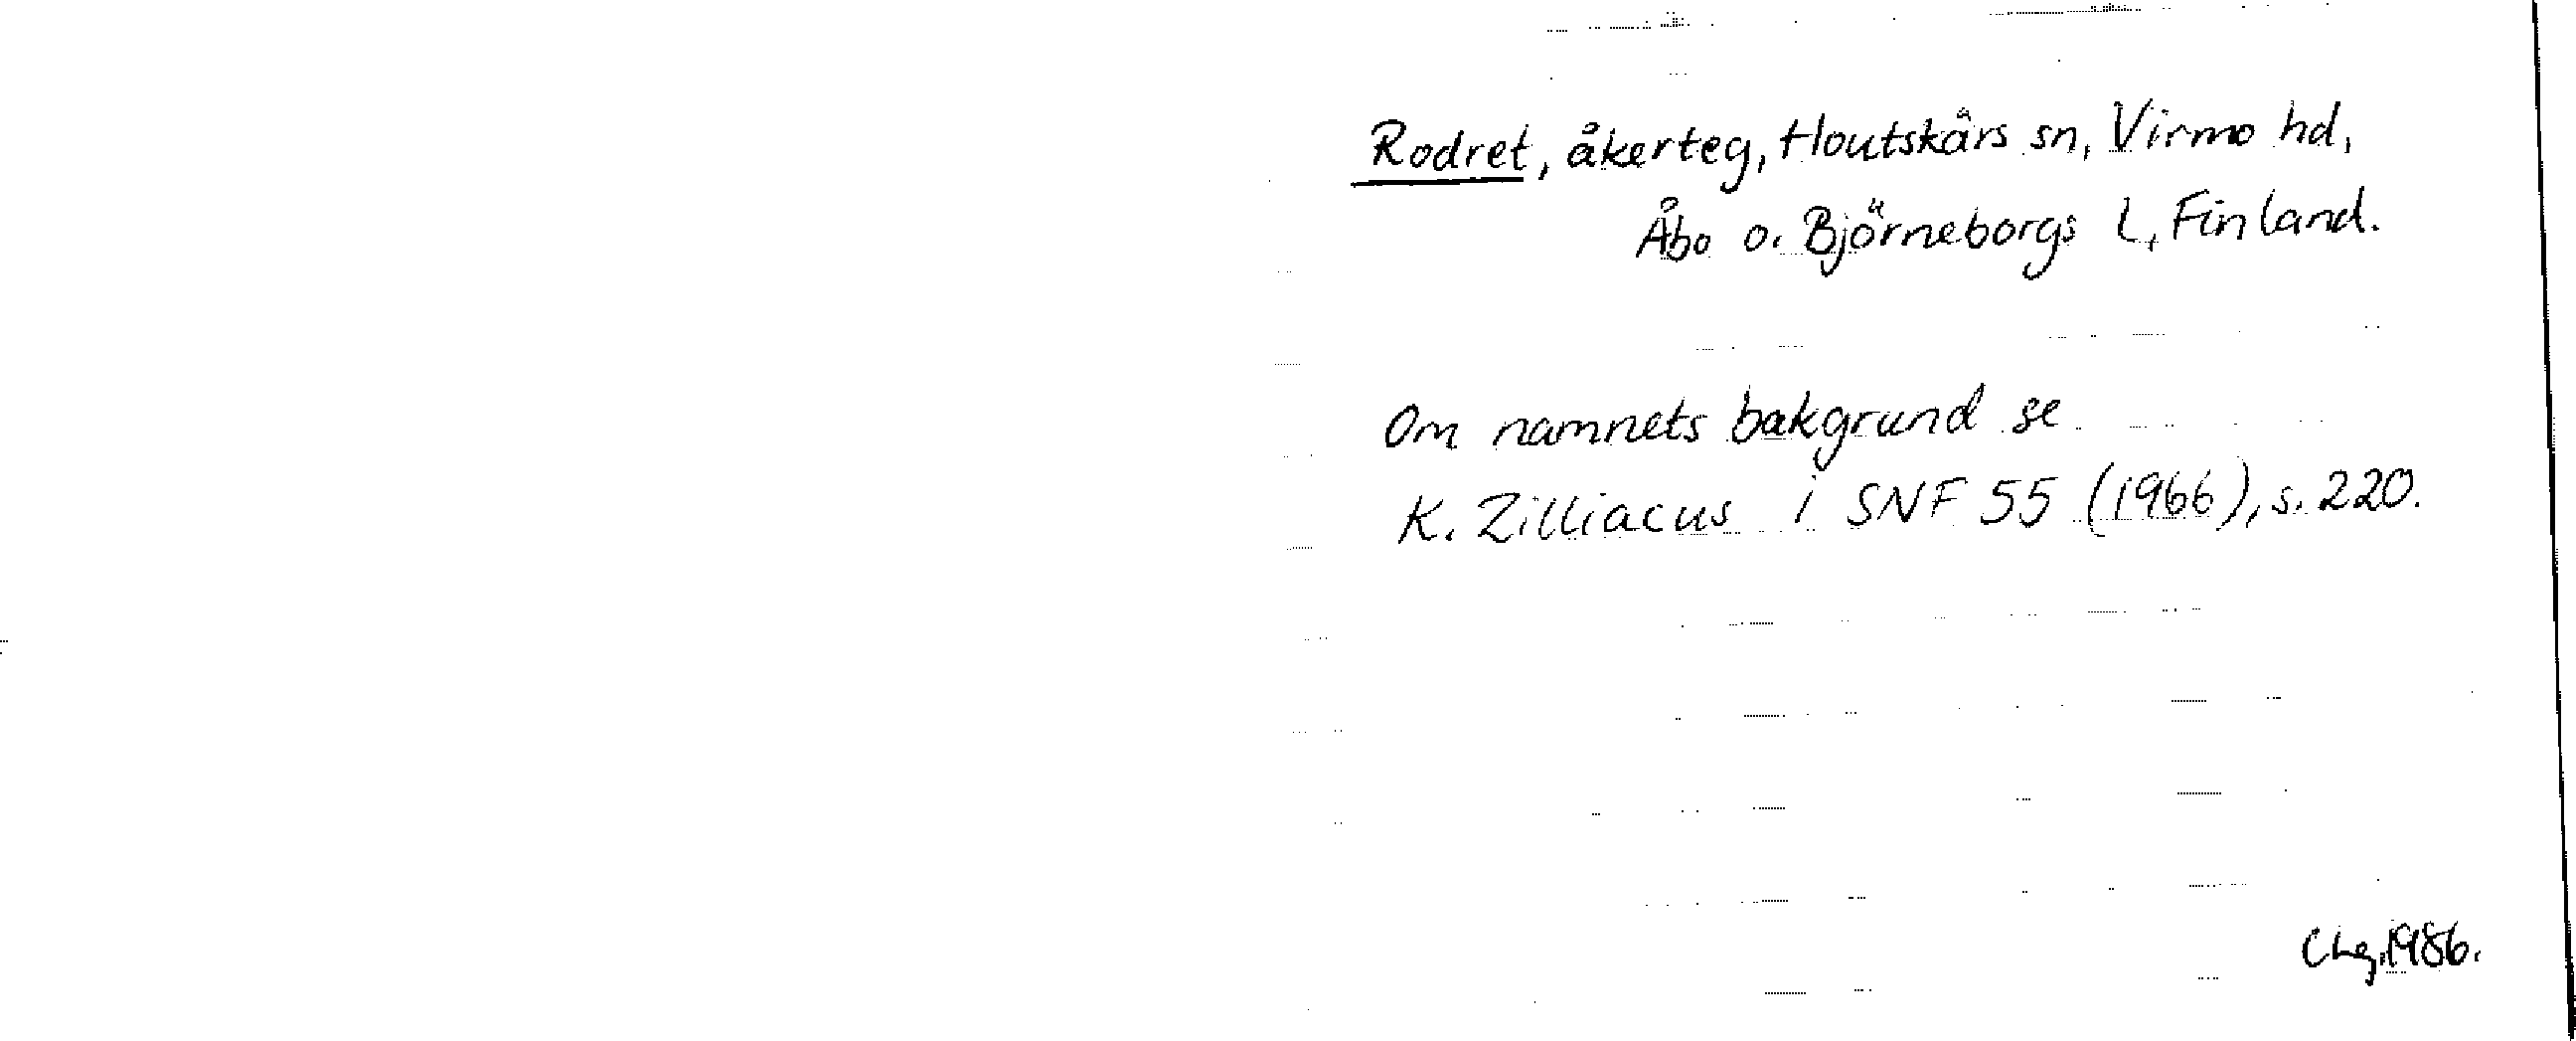 Rodret, åkerteg, Houtskärs sn, Virmo hd,
Åbo o. Björneborgs l, Finland.
Om namnets bakgrund se
K. Zilliacus i SNF 55 (1966), s. 220.
CLg, 1986.